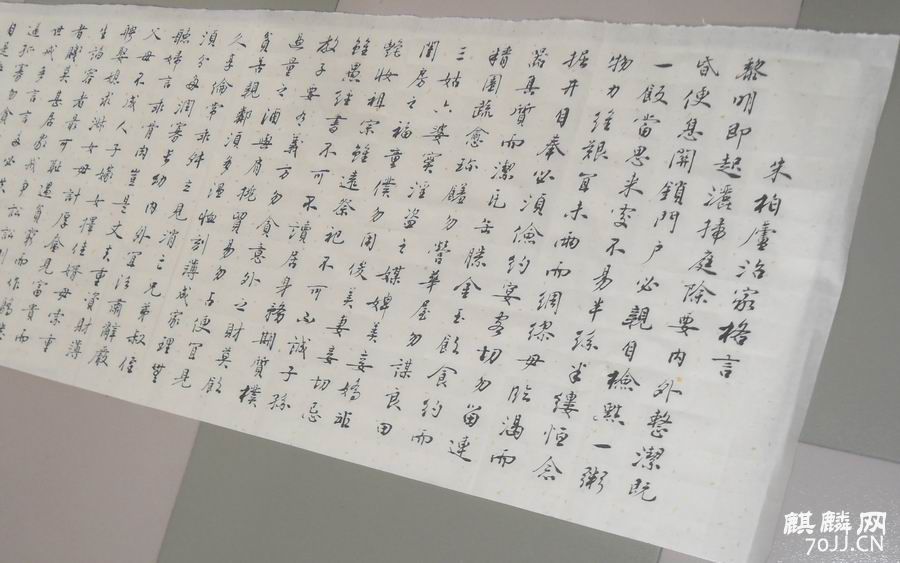 朱柏廬治家格言
黎明即起灑掃庭除要內外整潔既
昏便息關鎖門戶必親自檢點一粥
一飯當思來處不易半絲半縷恒念
物力維艱宜未雨而綢繆毋臨渴而
掘井自奉必須儉約宴客切勿留連
器具質而潔瓦缶勝金玉飲食約而
精園蔬愈珍饈勿營華屋勿謀良田
三姑六婆實淫盜之媒婢美妾嬌非
閨房之福童僕勿用俊美妻妾切忌
艷妝祖宗雖遠祭祀不可不誠子孫
雖愚經書不可不讀居身務期質樸
教子要有義方勿貪意外之財莫飲
過量之酒與肩挑貿易勿占便宜見
貧苦親鄰須多溫恤刻薄成家理無
久享倫常乖舛立見消亡兄弟叔侄
須分多潤寡長幼內外宜法肅辭嚴
聽婦言乖骨肉豈是丈夫重資財薄
父母不成人子嫁女擇佳婿毋索重
聘娶媳求淑女毋計厚奩見富貴而
生諂容者最可恥遇貧窮而作驕態
者賤莫甚居家戒爭訟訟則
世戒多言言多必失
逼孤寡
自是
麒麟网
70JJ.CN